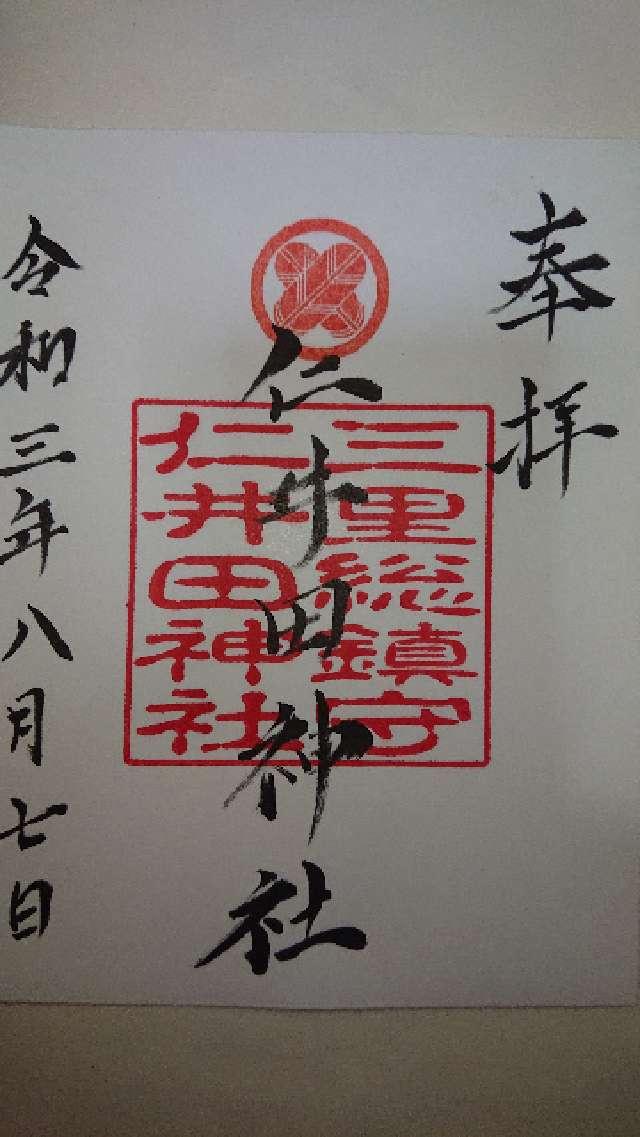 奉拝
三里総鎮守
仁井田神社
仁井田神社
令和三年八月七日